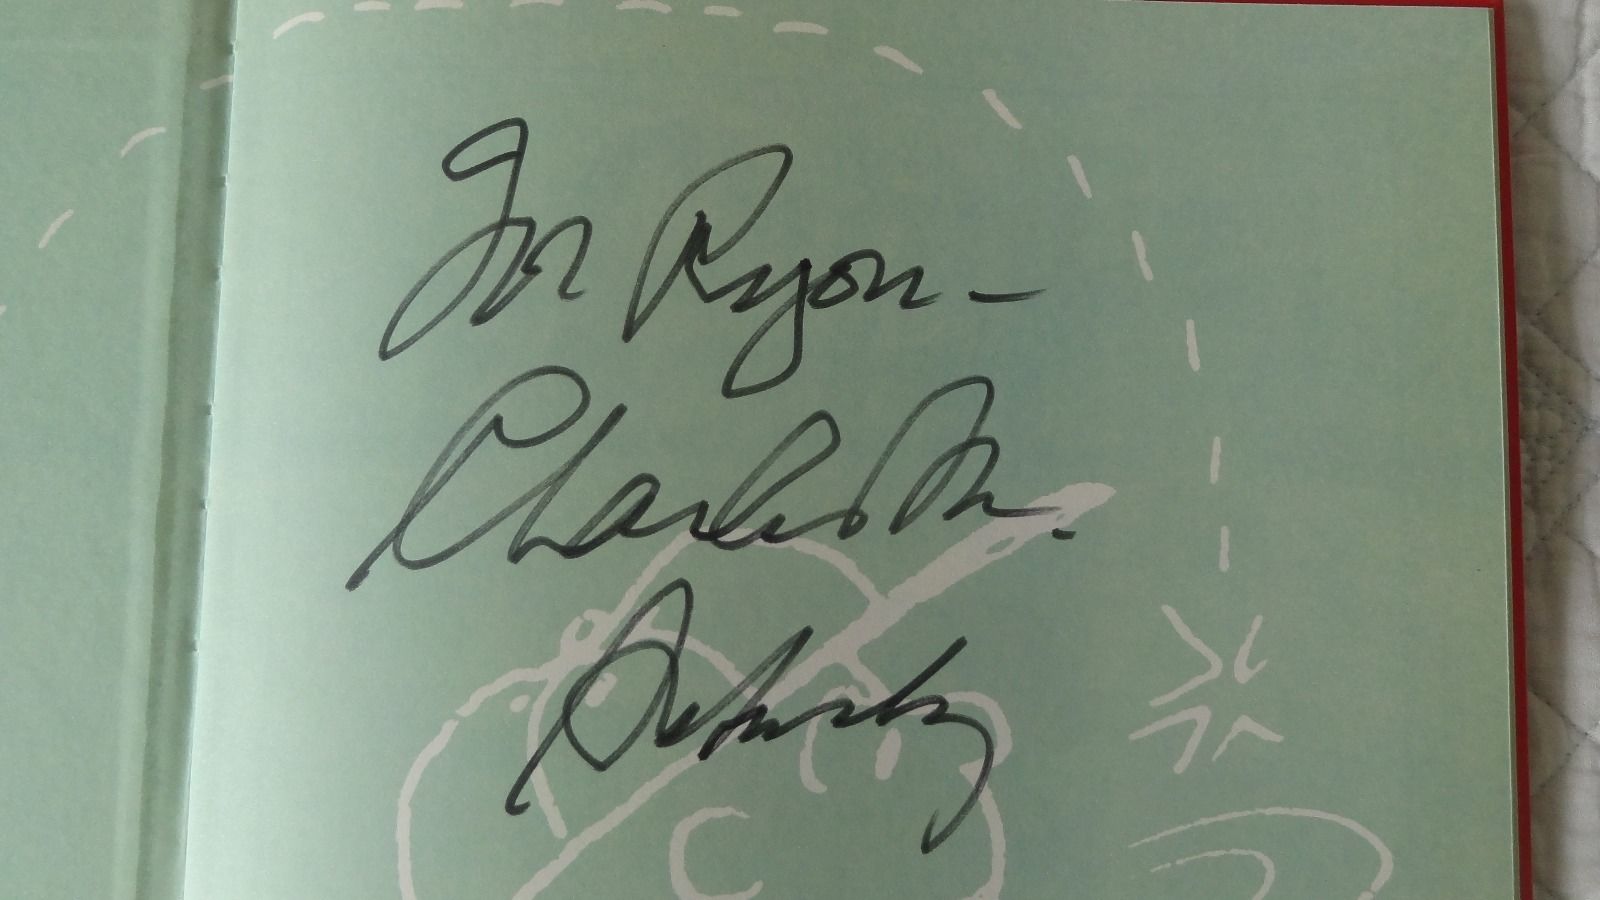 For Ryon -
Charles M.
Schulz